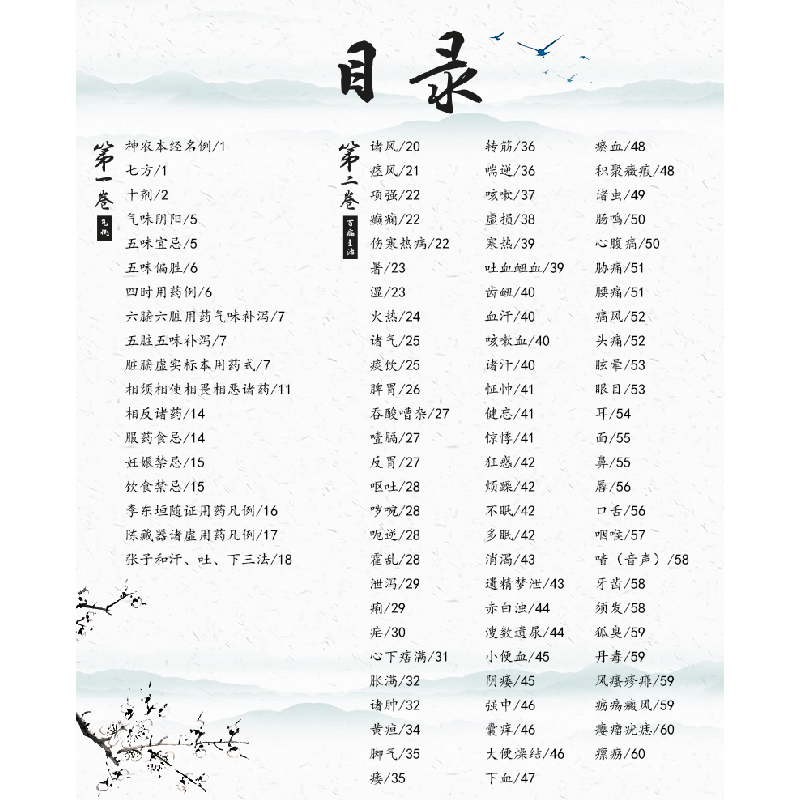 目录
第一卷
序例
神农本经名例/1
七方/1
十剂/2
气味阴阳/5
五味宜忌/5
五味偏胜/6
四时用药例/6
六腑六脏用药气味补泻/7
五脏五味补泻/7
脏腑虚实标本用药式/7
相须相使相畏相恶诸药/11
相反诸药/14
服药食忌/14
妊娠禁忌/15
饮食禁忌/15
李东垣随证用药凡例/16
陈藏器诸虚用药凡例/17
张子和汗、吐、下三法/18
第二卷
百病主治
诸风/20
痉风/21
项强/22
癫痫/22
伤寒热病/22
暑/23
湿/23
火热/24
诸气/25
痰饮/25
脾胃/26
吞酸嘈杂/27
噎膈/27
反胃/27
呕吐/28
哕啘/28
呃逆/28
霍乱/28
泄泻/29
痢/29
疟/30
心下痞满/31
胀满/32
诸肿/32
黄疸/34
脚气/35
痿/35
转筋/36
喘逆/36
咳嗽/37
虚损/38
寒热/39
吐血衄血/39
齿衄/40
血汗/40
咳嗽血/40
诸汗/40
怔忡/41
健忘/41
惊悸/41
狂惑/42
烦躁/42
不眠/42
多眠/42
消渴/43
遗精梦泄/43
赤白浊/44
溲数遗尿/44
小便血/45
阴痿/45
强中/46
囊痒/46
大便燥结/46
下血/47
瘀血/48
积聚癥瘕/48
诸虫/49
肠鸣/50
心腹痛/50
胁痛/51
腰痛/51
痛风/52
头痛/52
眩晕/53
眼目/53
耳/54
面/55
鼻/55
唇/56
口舌/56
咽喉/57
喑（音声）/58
牙齿/58
须发/58
狐臭/59
丹毒/59
风瘙疹痱/59
疬疡癜风/59
瘿瘤疣痣/60
瘰疬/60